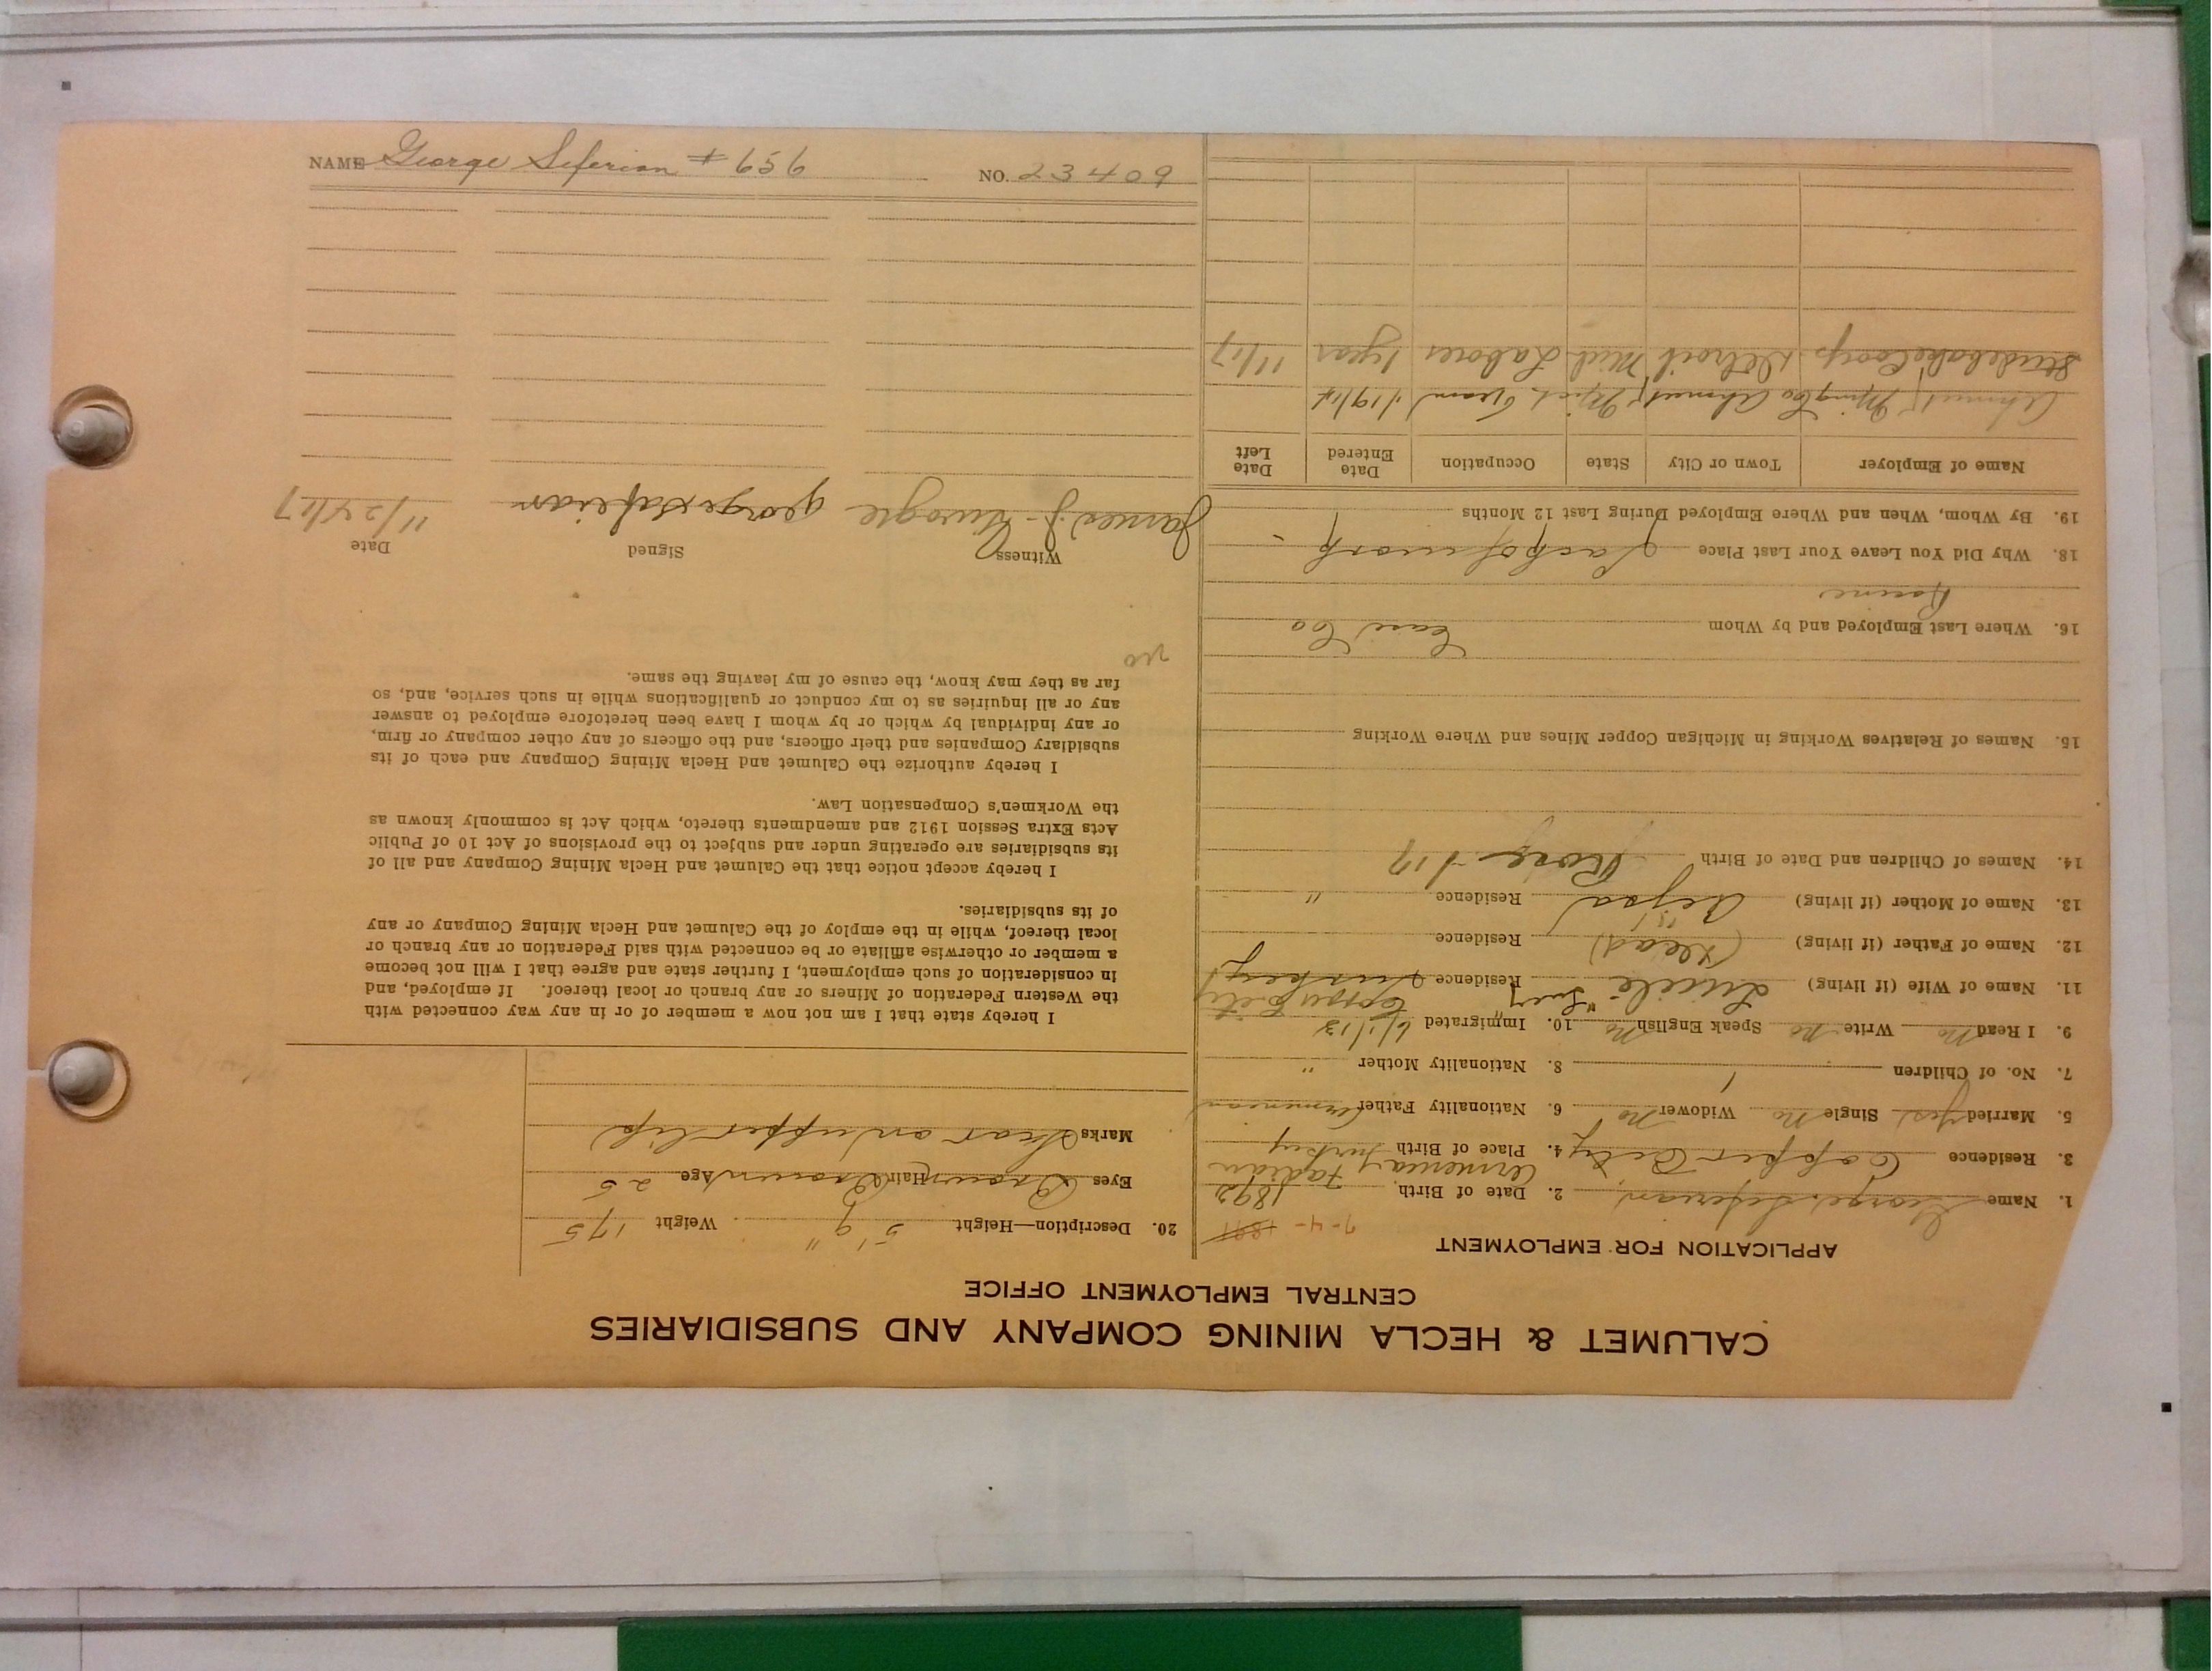 CALUMET & HECLA MINING COMPANY AND SUBSIDIARIES
CENTRAL EMPLOYMENT OFFICE
APPLICATION FOR EMPLOYMENT
7-4- 1891
1. Name George Seferian 2. Date of Birth 1892
Armenia
3. Residence Copper City 4. Place of Birth Turkey
5. Married Yes Single No Widower No 6. Nationality Father Armenian
7. No. of Children 1 8. Nationality Mother "
9. I Read No Write No Speak English No 10. Immigrated 6/1/13
"Lucy" Copper City
11. Name of Wife (if living) Lucile Residence Turkey
12. Name of Father (if living) (Dead) Residence
13. Name of Mother (if living) Residence "
14. Names of Children and Date of Birth Rose 17
15. Names of Relatives Working in Michigan Copper Mines and Where Working
16. Where Last Employed and by Whom Co
18. Why Did You Leave Your Last Place Lack of work
19. By Whom, When and Where Employed During Last 12 Months
Name of Employer Town or City State Occupation Date Entered Date Left
Ahmeek Mining Co Ahmeek Mich
Studebaker Corp Detroit Mich Laborer 1 year 11/17
20. Description—Height 5' 9" Weight 175
Eyes Brown Hair Brown Age 25
Marks Scar on upper lip
I hereby state that I am not now a member of or in any way connected with
the Western Federation of Miners or any branch or local thereof. If employed, and
in consideration of such employment, I further state and agree that I will not become
a member or otherwise affiliate or be connected with said Federation or any branch or
local thereof, while in the employ of the Calumet and Hecla Mining Company or any
of its subsidiaries.
I hereby accept notice that the Calumet and Hecla Mining Company and all of
its subsidiaries are operating under and subject to the provisions of Act 10 of Public
Acts Extra Session 1912 and amendments thereto, which Act is commonly known as
the Workmen's Compensation Law.
I hereby authorize the Calumet and Hecla Mining Company and each of its
subsidiary Companies and their officers, and the officers of any other company or firm,
or any individual by which or by whom I have been heretofore employed to answer
any or all inquiries as to my conduct or qualifications while in such service, and, so
far as they may know, the cause of my leaving the same.
no
Witness Signed Date
James J. george 11/24/17
NAME George Seferian # 656 NO. 23409